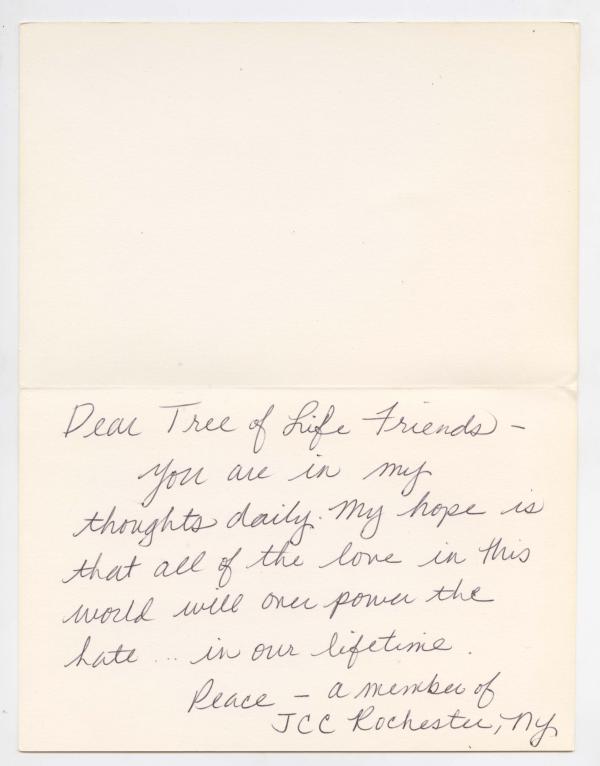 Dear Tree of Life Friends –
You are in my
thoughts daily. My hope is
that all of the love in this
world will over power the
hate ... in our lifetime.
Peace – a member of
JCC Rochester, NY